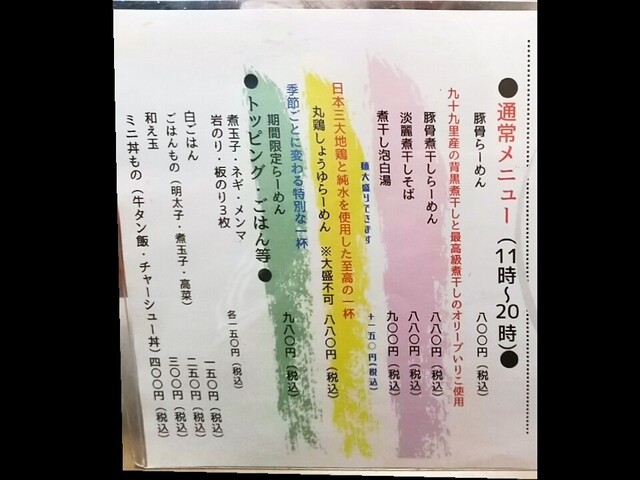 ●通常メニュー（11時～20時）●
豚骨らーめん 八〇〇円（税込）
九十九里産の背黒煮干しと最高級煮干しのオリーブいりこ使用
豚骨煮干しらーめん 八八〇円（税込）
淡麗煮干しそば 八八〇円（税込）
煮干し泡白湯 九〇〇円（税込）
麺大盛りできます ＋一五〇円（税込）
日本三大地鶏と純水を使用した至高の一杯
丸鶏しょうゆらーめん ※大盛不可 八八〇円（税込）
季節ごとに変わる特別な一杯
期間限定らーめん 九八〇円（税込）
●トッピング・ごはん等●
煮玉子・ネギ・メンマ
岩のり・板のり３枚 各一五〇円（税込）
白ごはん 一五〇円（税込）
ごはんもの（明太子・煮玉子・高菜） 二五〇円（税込）
和え玉 三〇〇円（税込）
ミニ丼もの（牛タン飯・チャーシュー丼）四〇〇円（税込）